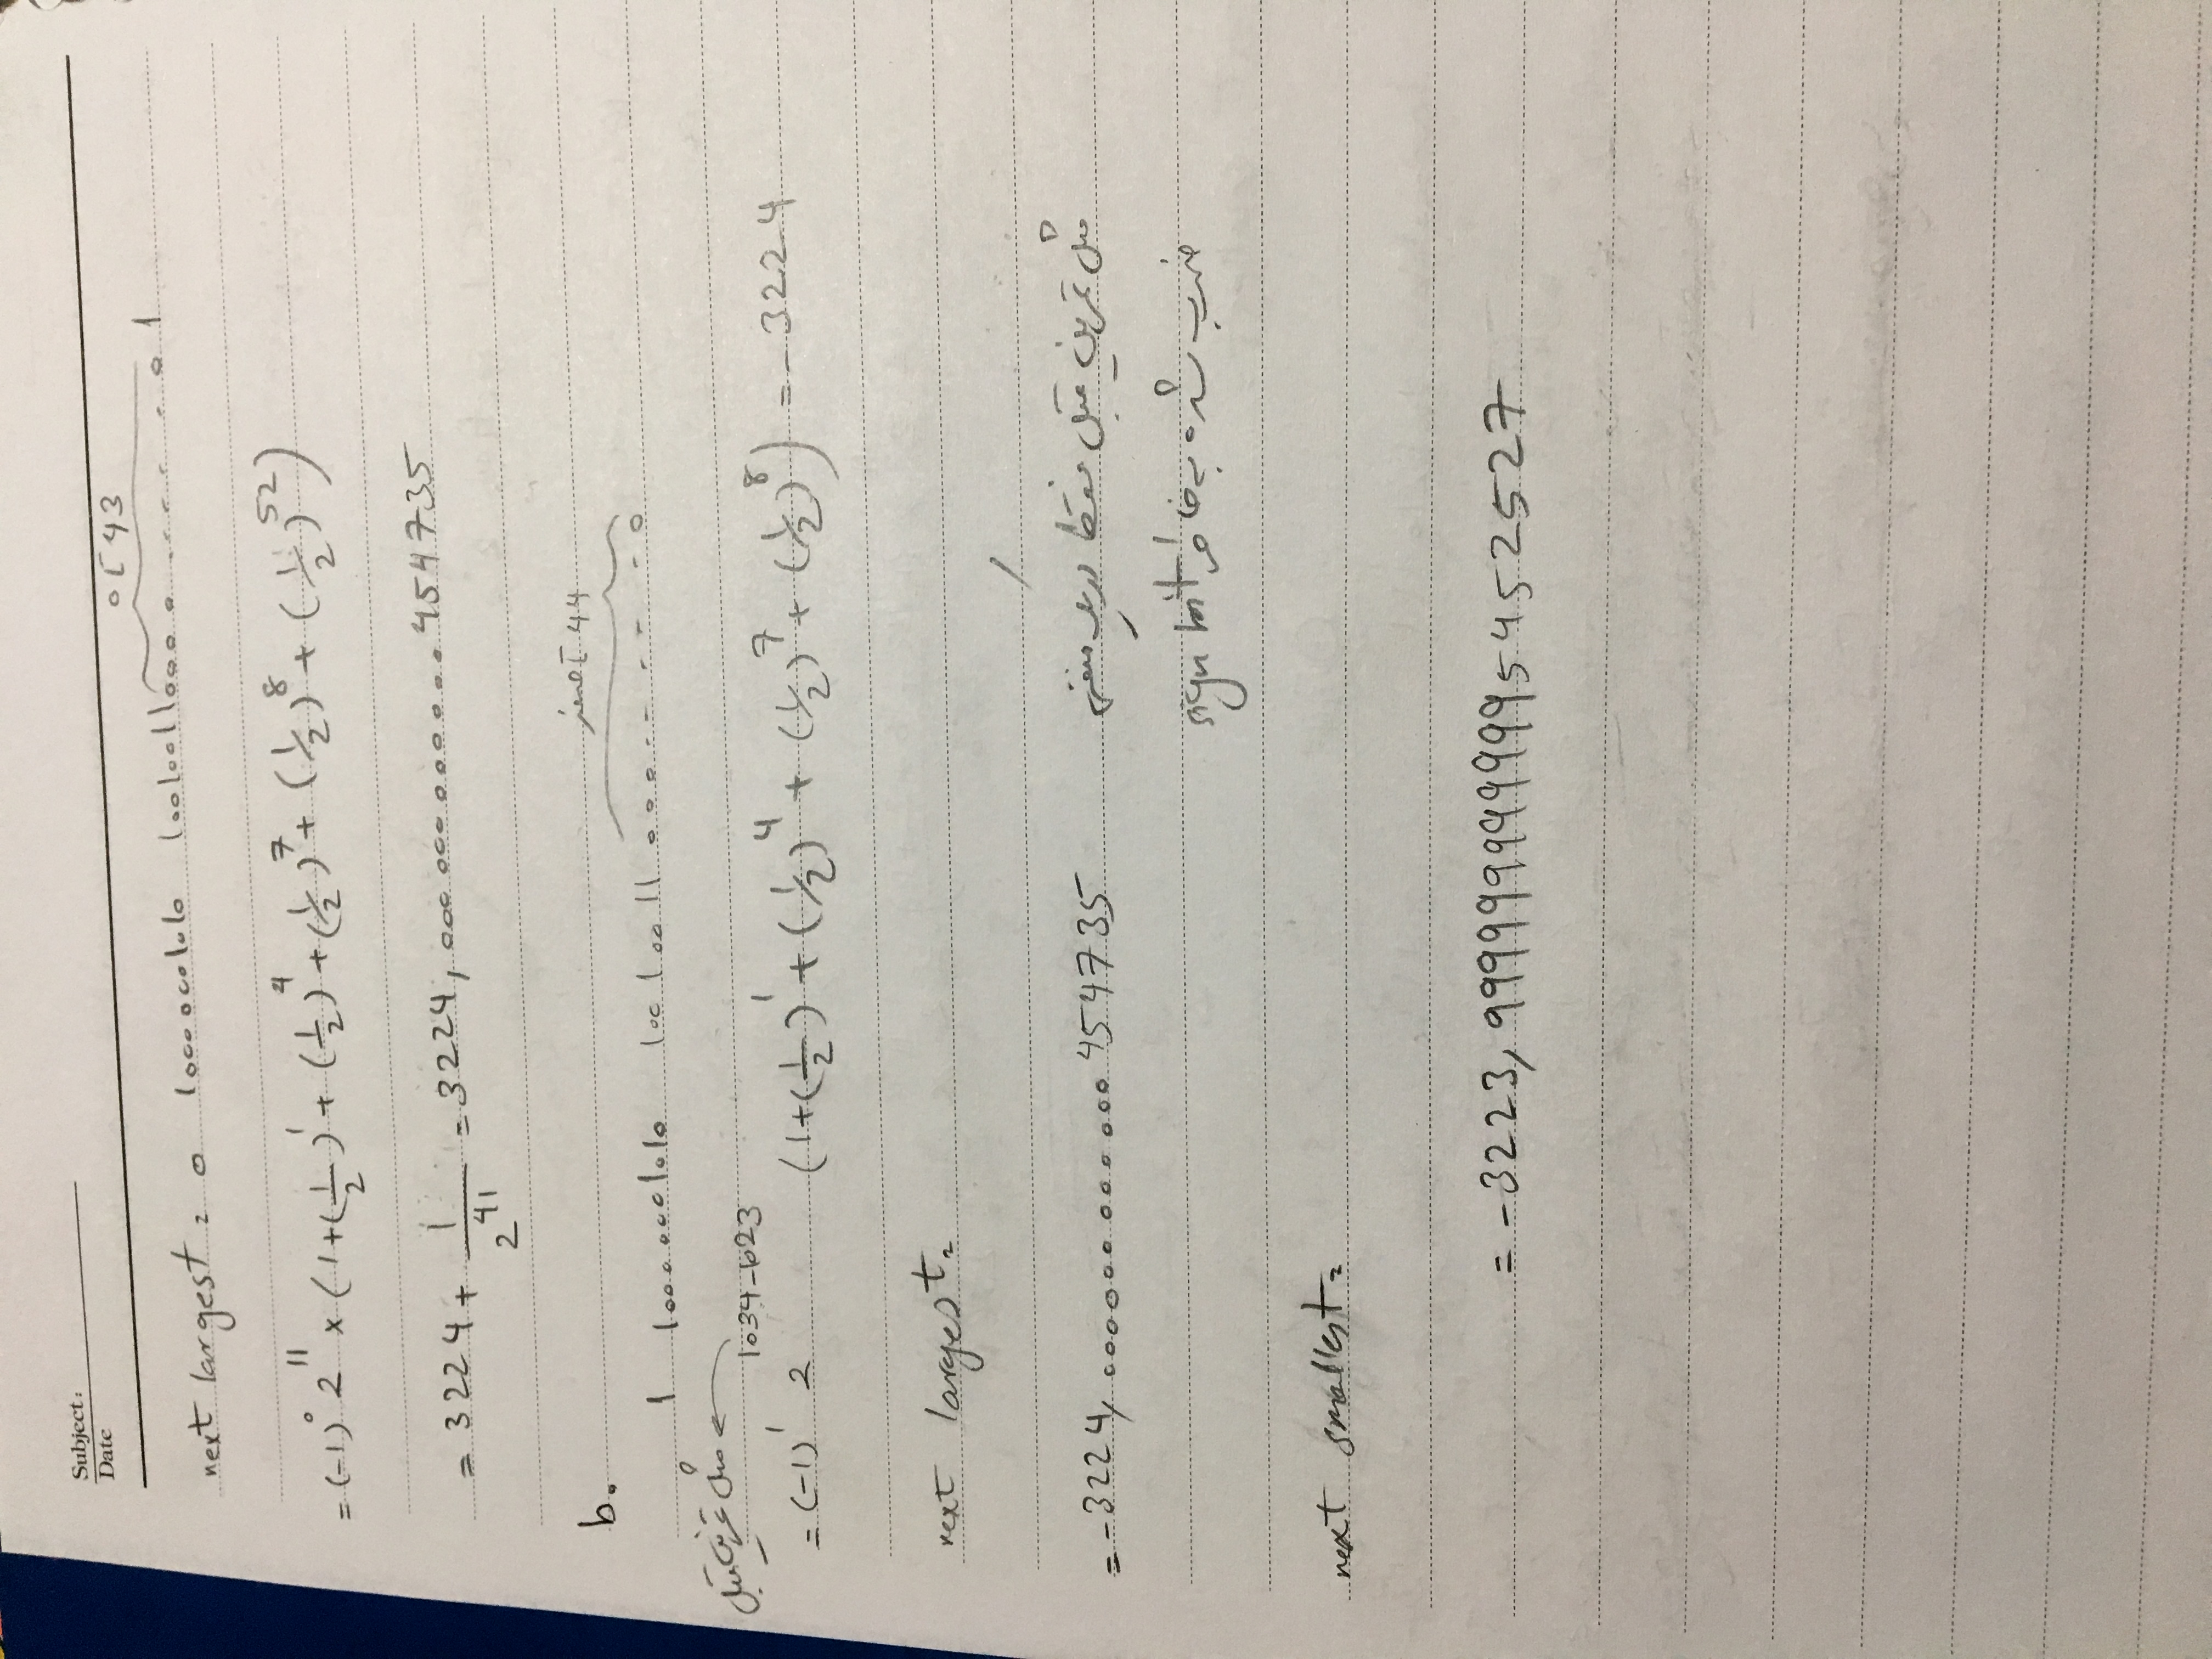 Subject:
Date
43 تا 0
next largest = 0 10000001010 10010011000 0 ........ 0 1
= (-1)^0 2^11 × (1+(1/2)^1 + (1/2)^4 + (1/2)^7 + (1/2)^8 + (1/2)^52)
= 3224 + 1/2^41 = 3224, 000000000000454735
b.
44 تا صفر
1 10000001010 10010011 000.....0
مثل تمرین قبل
= (-1)^1 2^1034-1023 (1+(1/2)^1 + (1/2)^4 + (1/2)^7 + (1/2)^8) = -3224
next largest =
= -3224, 000000000000454735
مثل تمرین قبل فقط در یک منفی
ضرب شده به خاطر sign bit
next smallest =
= -3223, 9999999999999545 2527